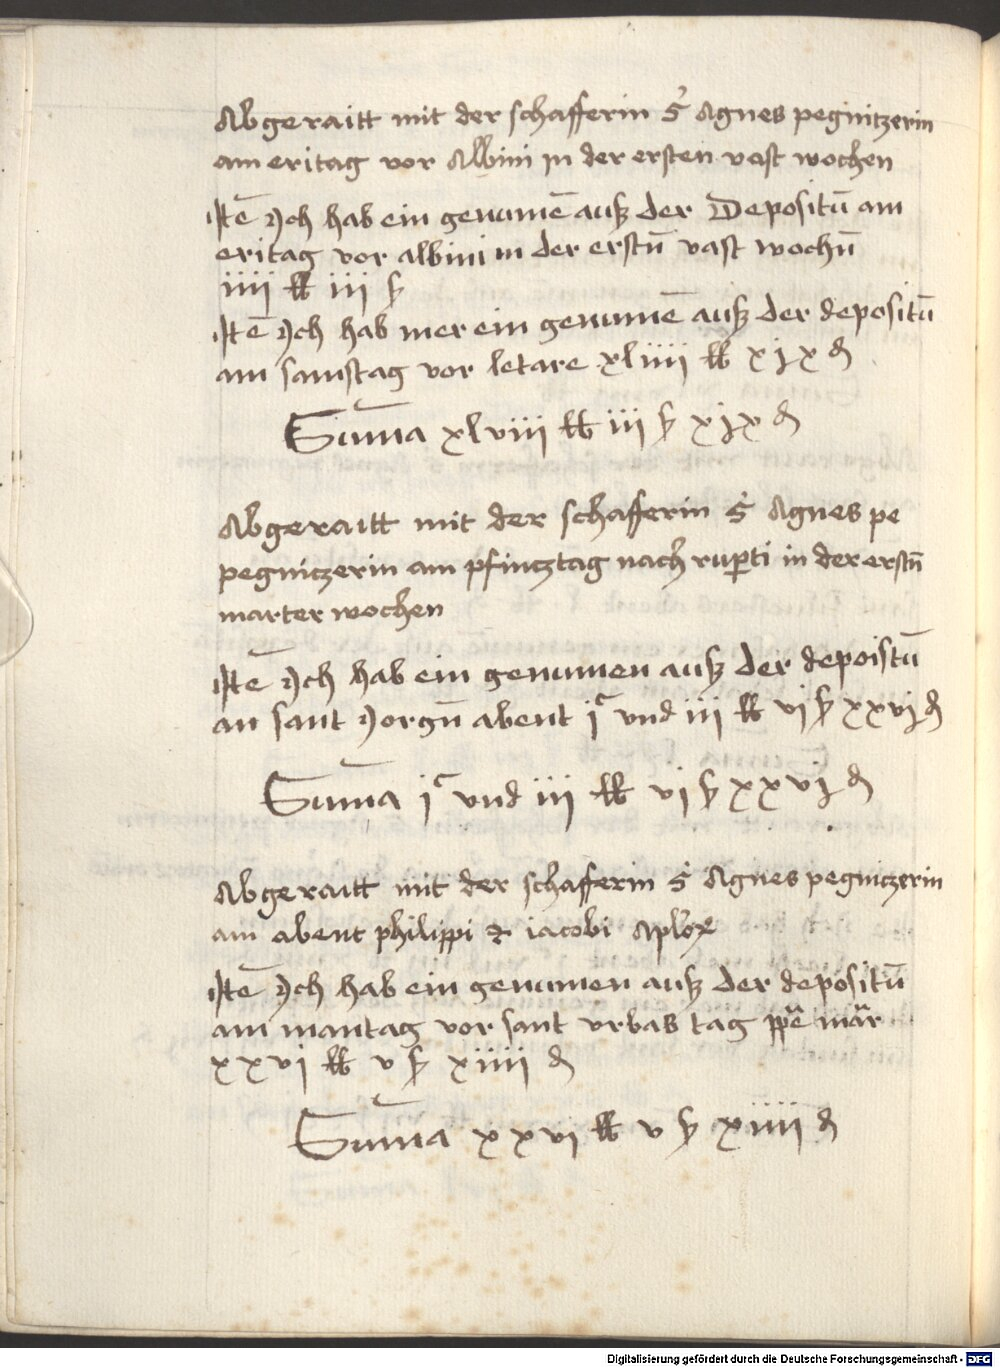 Abgeraitt mit der schafferin S Agnes pegnitzerin
am eritag vor Albini jn der ersten vast wochen
Itē Ich hab ein genumē ausz der Depositū am
eritag vor albini in der erstn̄ vast wochn̄
iiii lb iii ß
Itē Ich hab mer ein genumē ausz der depositū
am samstag vor letare xliiii lb xjx ₰
Sum̄a xlviii lb iii ß xjx ₰
Abgeraitt mit der schafferin S Agnes pe
pegniczerin am pfincztag nach ruperti in der erstn̄
marter wochen
Itē Ich hab ein genumen ausz der depoistū
an sant Jorgn̄ abent jᶜ vnd iii lb vi ß xxvj ₰
Sum̄a jᶜ vnd iii lb vj ß xxvj ₰
Abgeraitt mit der schafferin S Agnes pegniczerin
am abent philippi ⁊ iacobi aplōꝝ
Itē Ich hab ein genumen ausz der depositū
am mantag vor sant vrbas tag ppē mār
xxvi lb v ß xiiii ₰
Sum̄a xxvi lb v ß xiiii ₰
Digitalisierung gefördert durch die Deutsche Forschungsgemeinschaft - DFG